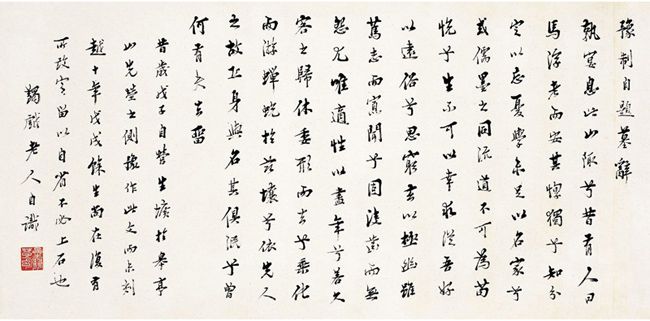 豫制自題墓辭
孰宴息此山陬兮昔有人曰
馬浮老而安其惸獨兮知分
定以忘憂學未足以名家兮
或儒墨之同流道不可為苟
悅兮生不可以幸求從吾好
以遠俗兮思窮玄以極幽雖
篤志而寡聞兮固沒齒而無
怨尤唯適性以盡年兮若久
客之歸休委形而去兮乘化
而游蟬蛻於茲壤兮依先人
之故丘身與名其俱泯兮曾
何有夫去留
昔歲戊子自營生壙於皋亭
山先塋之側擬作此文而未刻
越十年戊戌餘生尚在復有
所改定留以自省不必上石也
蠲戲老人自識